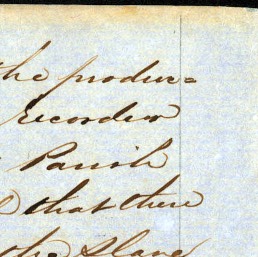 the produc=
recorder
Parish
that there
the Slave